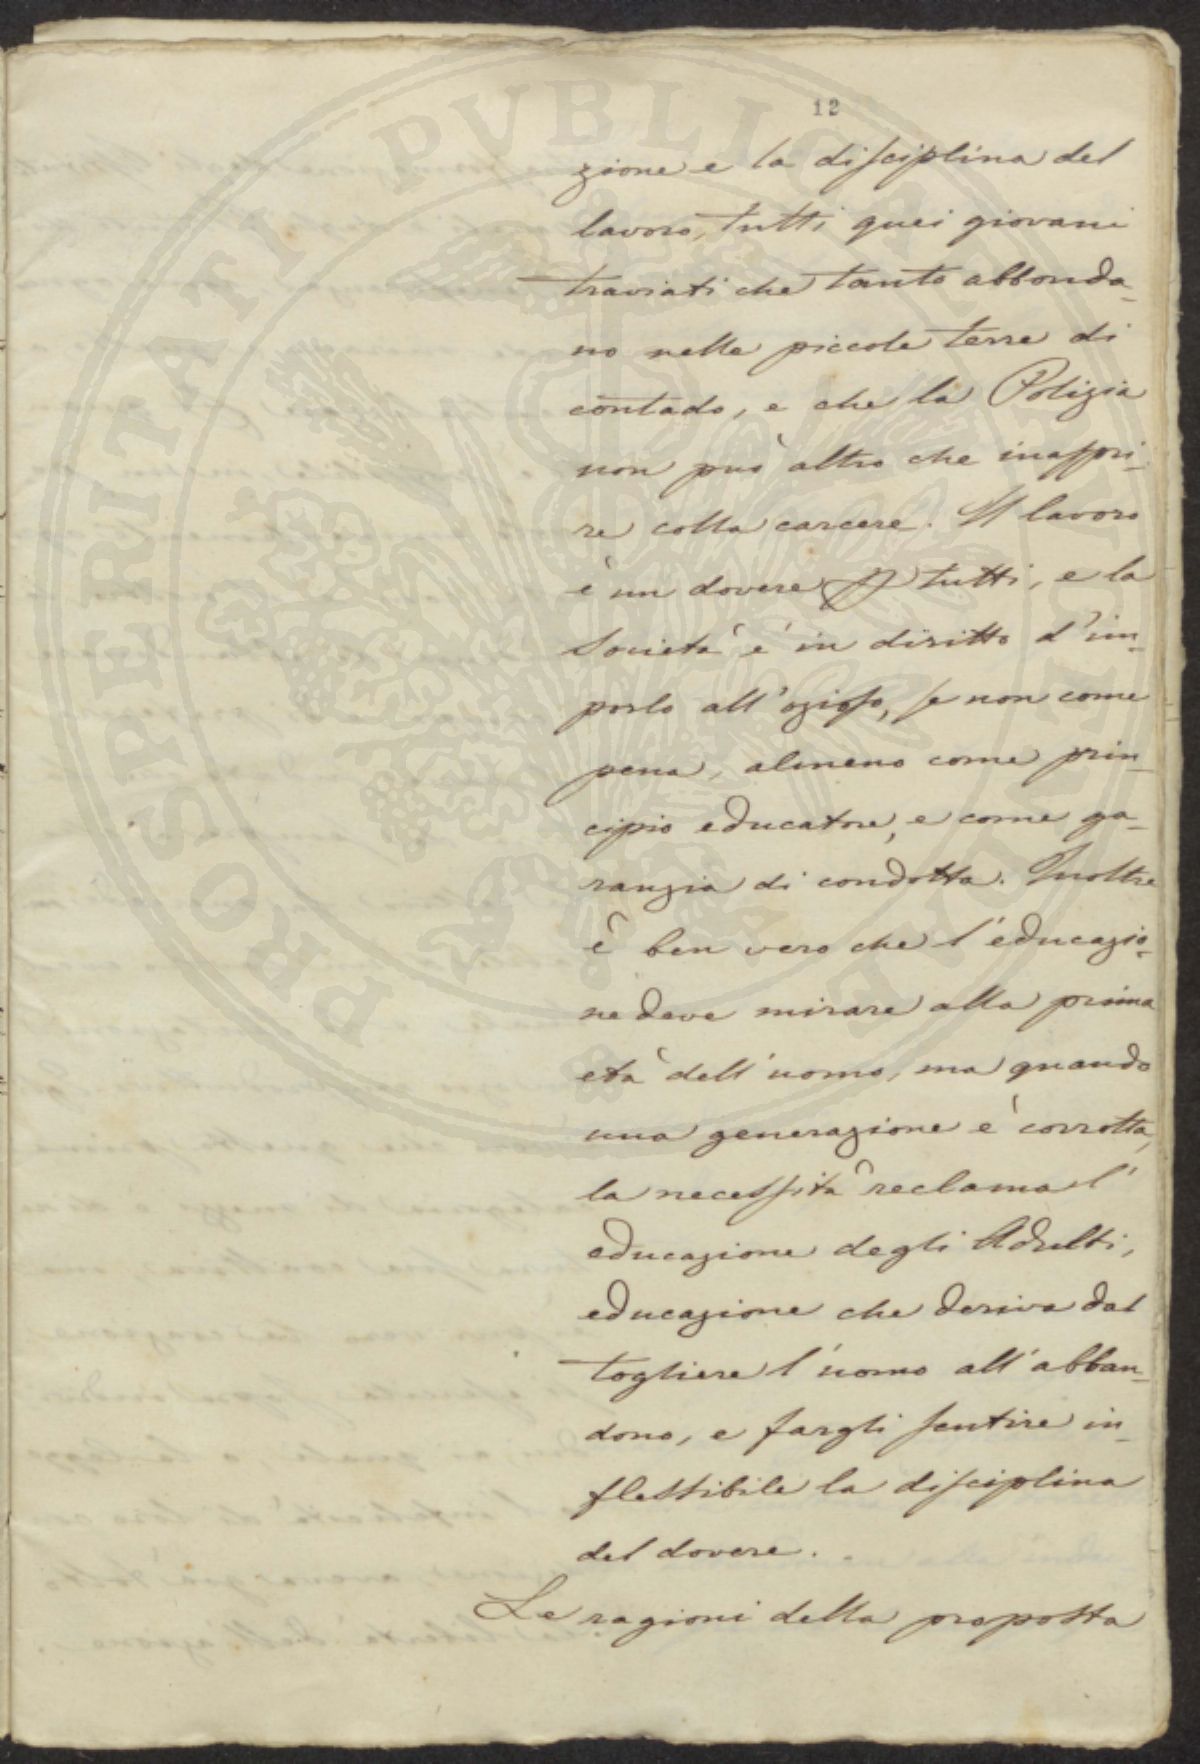 12
zione e la disciplina del
lavoro, tutti quei giovani
traviati che tanto abbonda-
no nelle piccole terre di
contado, e che la Polizia
non può altro che inaspri-
re colla carcere. Il lavoro
è un dovere p tutti, e la
Società è in diritto d'im-
porlo all'ozioso, se non come
pena, almeno come prin-
cipio educatore, e come ga-
ranzia di condotta. Inoltre
è ben vero che l'educazio-
ne deve mirare alla prima
età dell'uomo, ma quando
una generazione è corrotta,
la necessità reclama l'
educazione degli Adulti,
educazione che deriva dal
togliere l'uomo all'abban-
dono, e fargli sentire in-
flessibile la disciplina
del dovere.
Le ragioni della proposta
PROSPERITATI PVBLICAE AVGENDAE